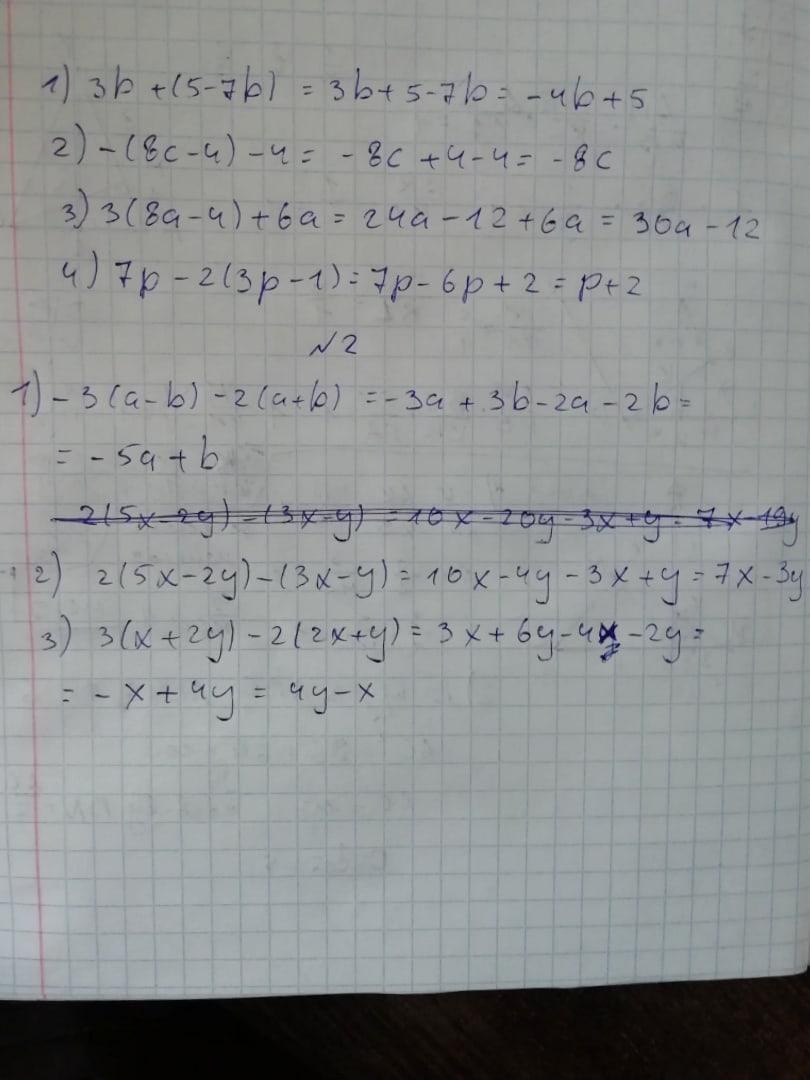 1) 3b + (5-7b) = 3b + 5 - 7b = -4b + 5
2) -(8c-4) - 4 = -8c + 4 - 4 = -8c
3) 3(8a-4) + 6a = 24a - 12 + 6a = 30a - 12
4) 7p - 2(3p-1) = 7p - 6p + 2 = p + 2
№2
1) -3(a-b) - 2(a+b) = -3a + 3b - 2a - 2b =
= -5a + b
2(5x-2y) - (3x-y) = 10x - 20y - 3x + y = 7x - 19y
2) 2(5x-2y) - (3x-y) = 10x - 4y - 3x + y = 7x - 3y
3) 3(x+2y) - 2(2x+y) = 3x + 6y - 4x - 2y =
= -x + 4y = 4y - x